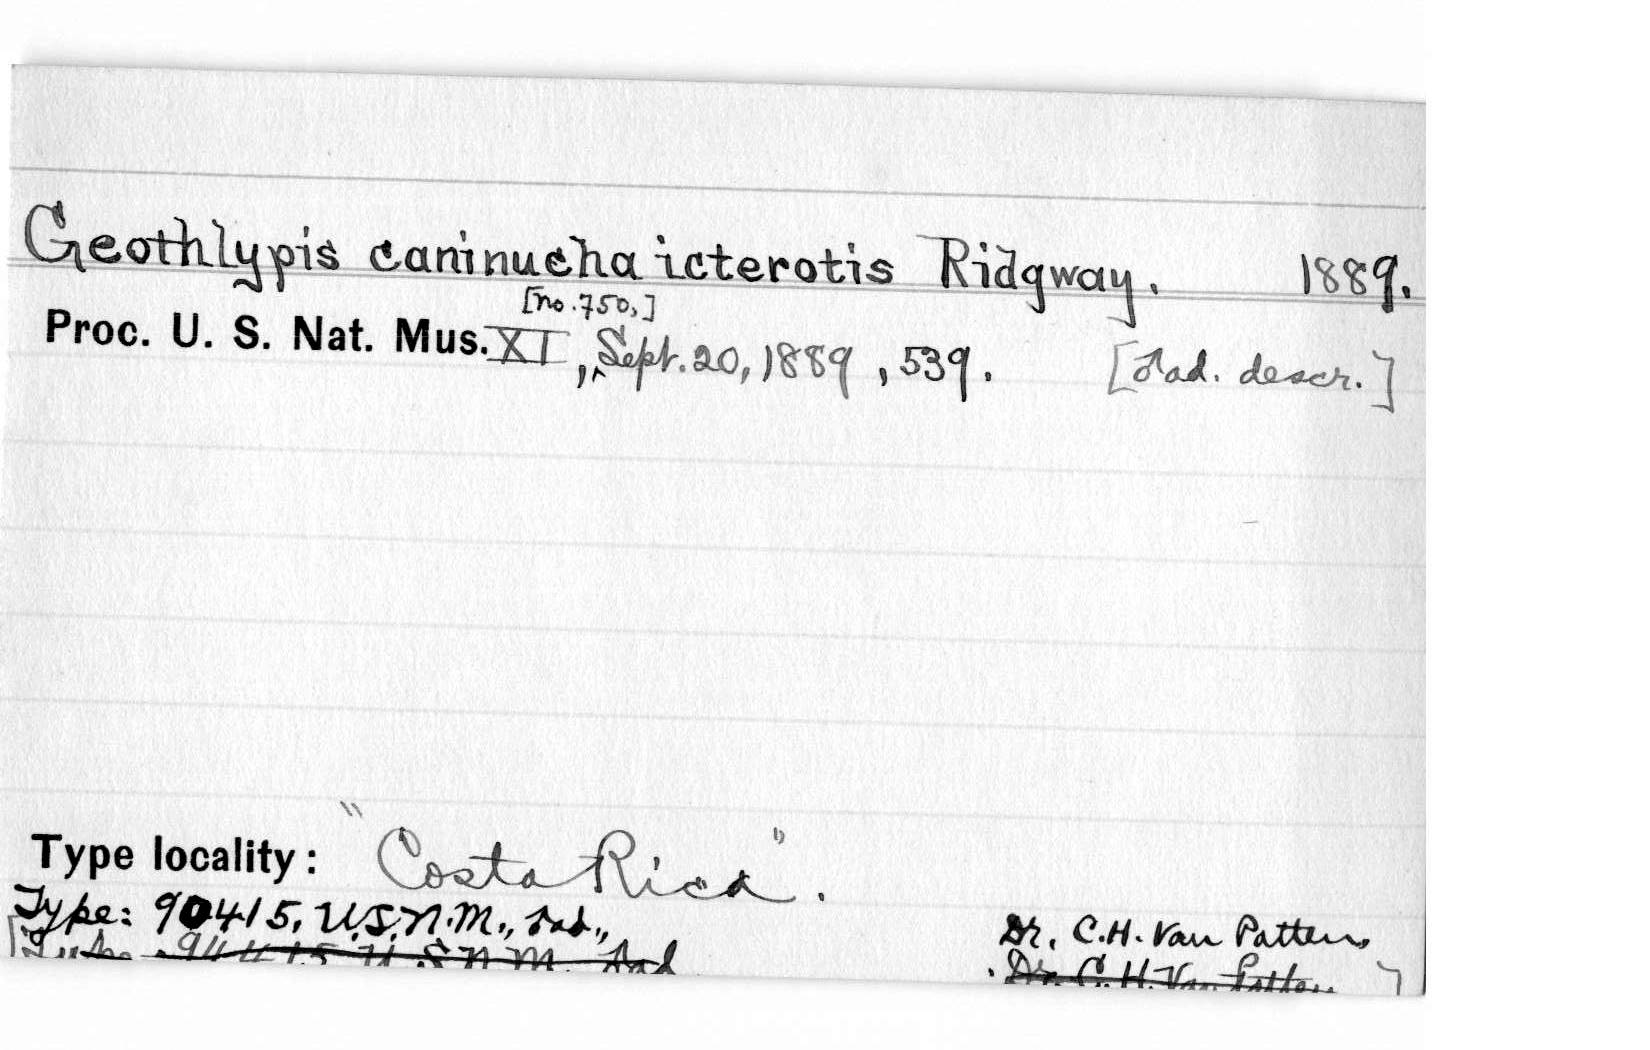 Geothlypis caninucha icterotis Ridgway. 1889.
[no. 750,]
Proc. U. S. Nat. Mus. XI, ‸Sept. 20, 1889, 539. [♂ad. descr.]
Type locality: "Costa Rica".
Type: 90415, U.S.N.M., ♂ad., Dr. C.H. Van Patten,
[Type 94415 U.S.N.M. ♂ad Dr. C.H. Van Patten]